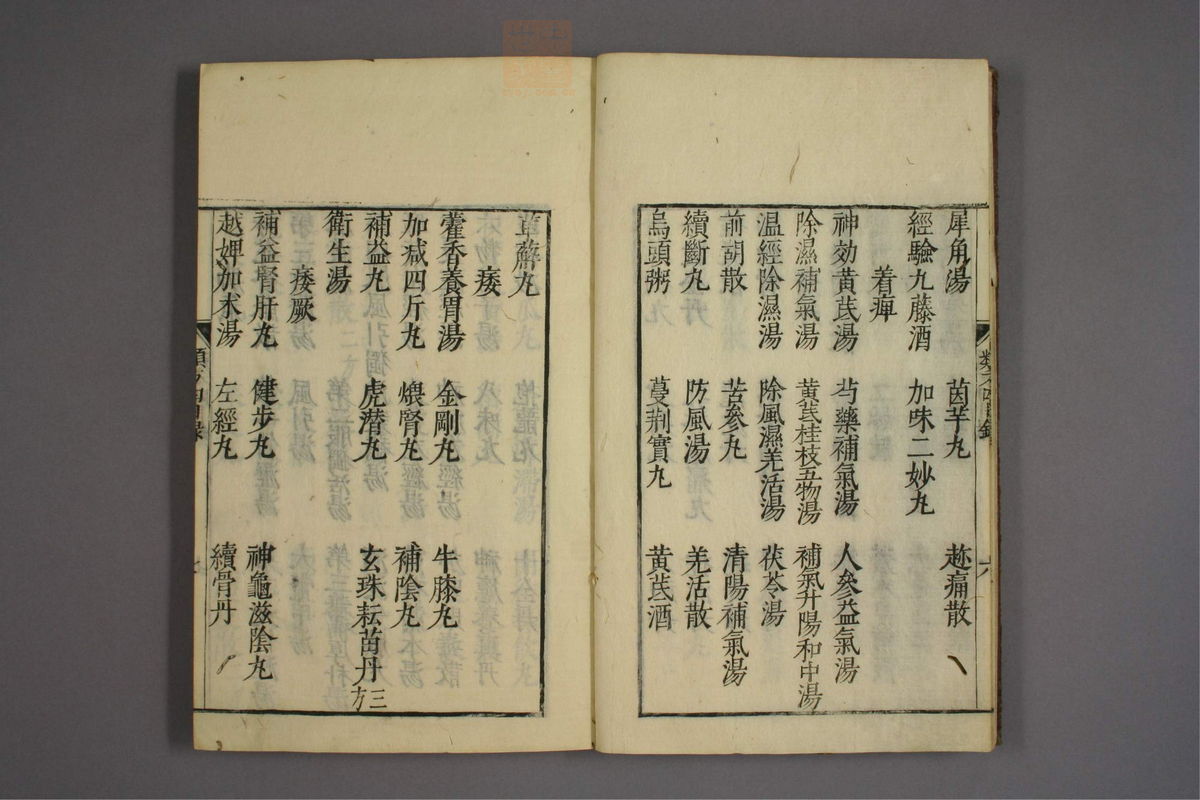 犀角湯 茵芋丸 趂痛散
經驗九藤酒 加味二妙丸
着痺
神効黄芪湯 芍藥補氣湯 人參益氣湯
除濕補氣湯 黄芪桂枝五物湯 補氣升陽和中湯
温經除濕湯 除風濕羌活湯 茯苓湯
前胡散 苦參丸 清陽補氣湯
續斷丸 防風湯 羌活散
烏頭粥 蔓荆實丸 黄芪酒
萆薢丸
痿
藿香養胃湯 金剛丸 牛膝丸
加减四斤丸 煨腎丸 補陰丸
補益丸 虎潜丸 玄珠耘苗丹三方
衛生湯
痿厥
補益腎肝丸 健步丸 神龜滋陰丸
越婢加术湯 左經丸 續骨丹